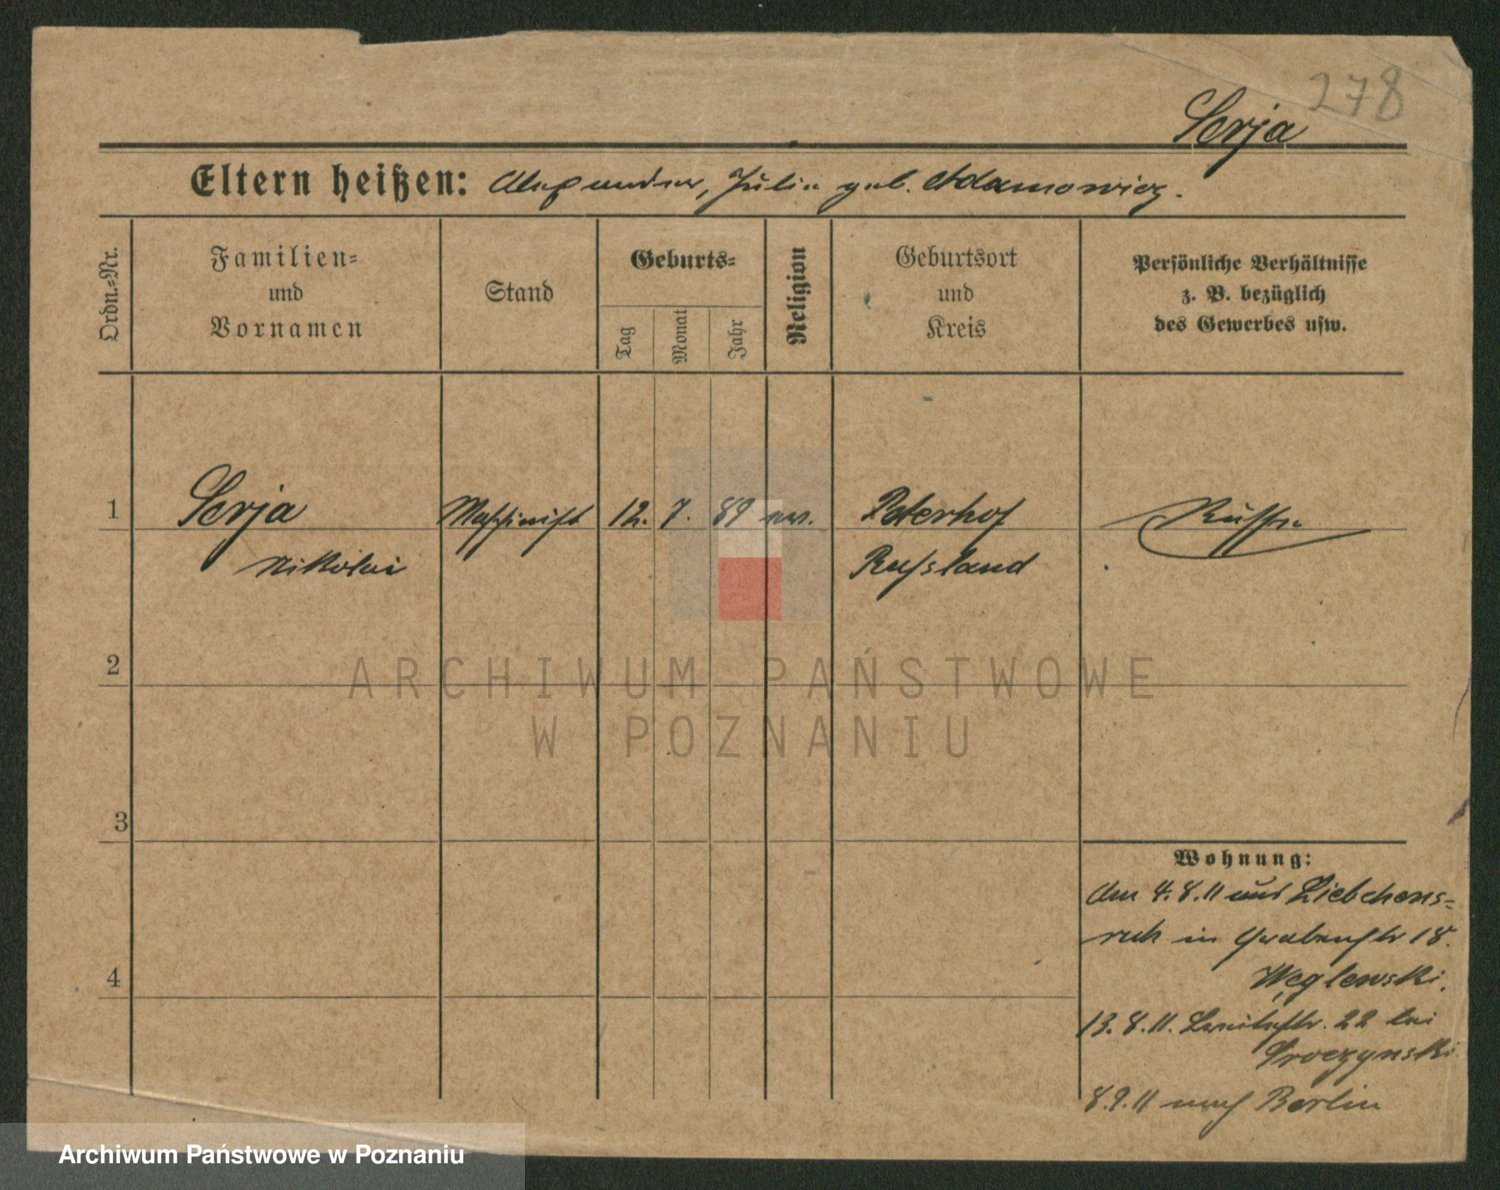 278
Serja
Eltern heißen: Alexander, Julia geb. Adamowicz.
Ordn.=Nr.
Familien=
und
Vornamen
Stand
Geburts=
Tag
Monat
Jahr
Religion
Geburtsort
und
Kreis
Persönliche Verhältnisse
z. B. bezüglich
des Gewerbes usw.
1 Serja Maschinist 12. 7. 89 ev. Peterhof Russe
Nikolai Russland
2
ARCHIWUM PAŃSTWOWE
W POZNANIU
3
Wohnung:
Am 4.8.11 aus Liebchens=
ruh in Grabenstr 18.
4
Węglewski.
13.8.11. 22 bei
Sroczynski
8.9.11 nach Berlin
Archiwum Państwowe w Poznaniu